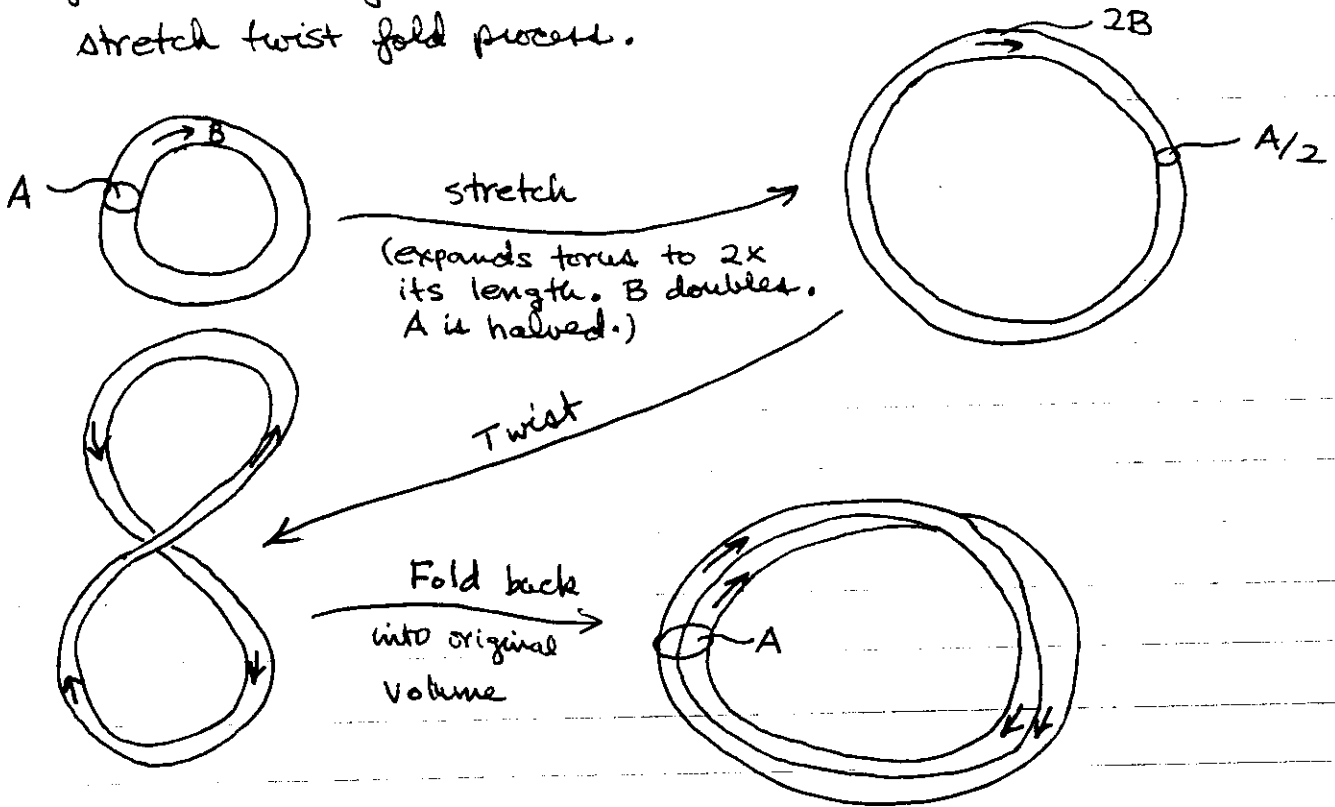 stretch twist fold process.
2B
B
A
A/2
stretch
(expands torus to 2x
its length. B doubles.
A is halved.)
Twist
Fold back
into original
volume
A